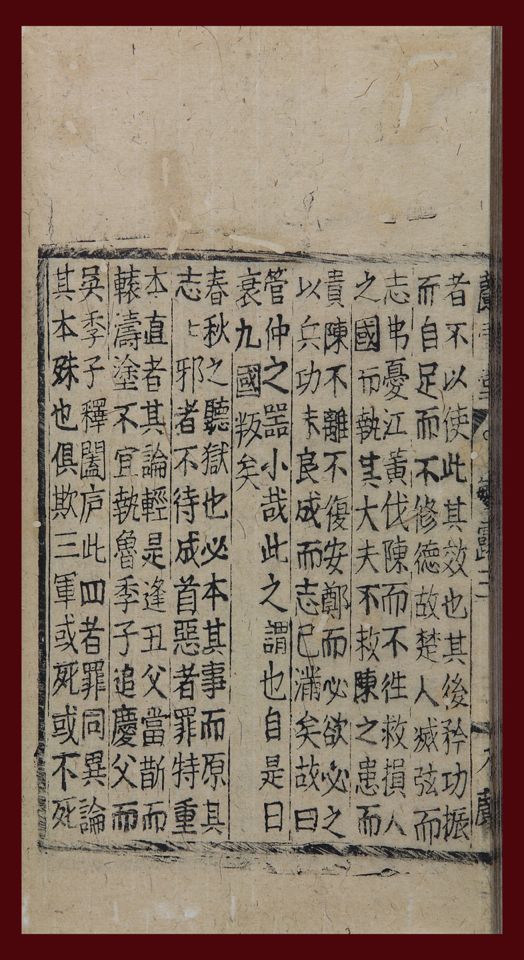 露三
者不以使此其效也其後矜功振
而自足而不修德故楚人滅弦而
志弗憂江黃伐陳而不徃救損人
之國而執其大夫不救陳之患而
責陳不離不復安鄭而必欲必之
以兵功未良成而志已滿矣故曰
管仲之器小哉此之謂也自是日
衰九國叛矣
春秋之聽獄也必本其事而原其
志〻邪者不待成首惡者罪特重
本直者其論輕是逢丑父當斮而
轅濤塗不宜執魯季子追慶父而
吳季子釋闔庐此四者罪同異論
其本殊也俱欺三軍或死或不死